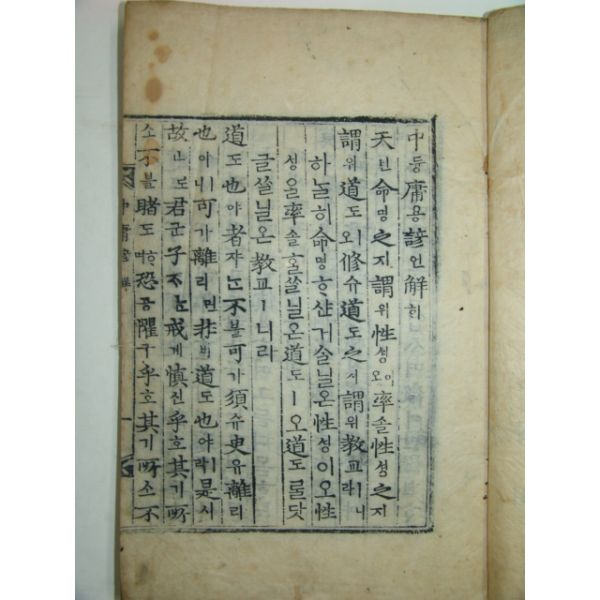 中듕庸용諺언解ᄒᆡ
天텬命명之지謂위性셩이오率솔性셩之지
謂위道도ㅣ오修슈道도之지謂위敎교ㅣ니라
하ᄂᆞᆯ히命명ᄒᆞ샨거ᄉᆞᆯ닐온性셩이오性
셩을率솔홈을닐온道도ㅣ오道도ᄅᆞᆯ닷
글ᄉᆞᆯ닐온敎교ㅣ니라
道도也야者쟈ᄂᆞᆫ不블可가須슈臾유離리
也야ㅣ니可가離리면非비道도也야ㅣ라是시
故고로君군子ᄌᆞᄂᆞᆫ戒계愼신乎호其기所
소不블睹도ᄒᆞ며恐공懼구乎호其기所소不